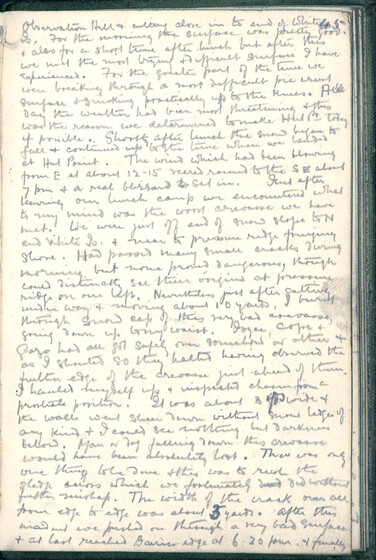 45
Observation Hill & cutting close in to end of White
Is. For the morning the surface was pretty good
& also for a short time after lunch but after this
we met the most trying & difficult surface I have
experienced. For the greater part of the time we
were breaking through a most difficult pie crust
surface & sinking practically up to the knees. All
day the weather had been most threatening & this
was the reason we determined to make Hut Pt. today
if possible. Shortly after lunch the snow began to
fall & continued up to the time when we landed
at Hut Point. The wind which had been blowing
from E at about 12-15 veered round to the SE about
7 pm & a real blizzard set in. Just after
leaving our lunch camp we encountered what
to my mind was the worst crevasse we have
met. We were just off end of snow slope to N
end White Is. & near to pressure ridge fringing
shore. Had passed many small cracks during
morning but none proved dangerous, though
could distinctly see their origins at pressure
ridge on our left. Nevertheless just after getting
under way & moving about 10 yards, I burst
through snow cap of this very bad crevasse
going down up to my waist. Joyce, Cope &
Gaze had all got safely over somehow or other &
as I shouted so they halted having observed the
further edge of the crevasse just ahead of them.
I hauled myself up & inspected chasm from a
prostate position. It was about 3 ft wide &
the walls went sheer down without snow ledge of
any kind & I could see nothing but darkness
below. Man or dog falling down this crevasse
would have been absolutely lost. There was only
one thing to be done & this was to rush the
sledge across which we fortunately did without
further mishap. The width of the crack over all
from edge to edge was about 3 yards. After this
we pushed on through a very bad surface
& at last reached Barrier edge at 6.30 pm. & finally